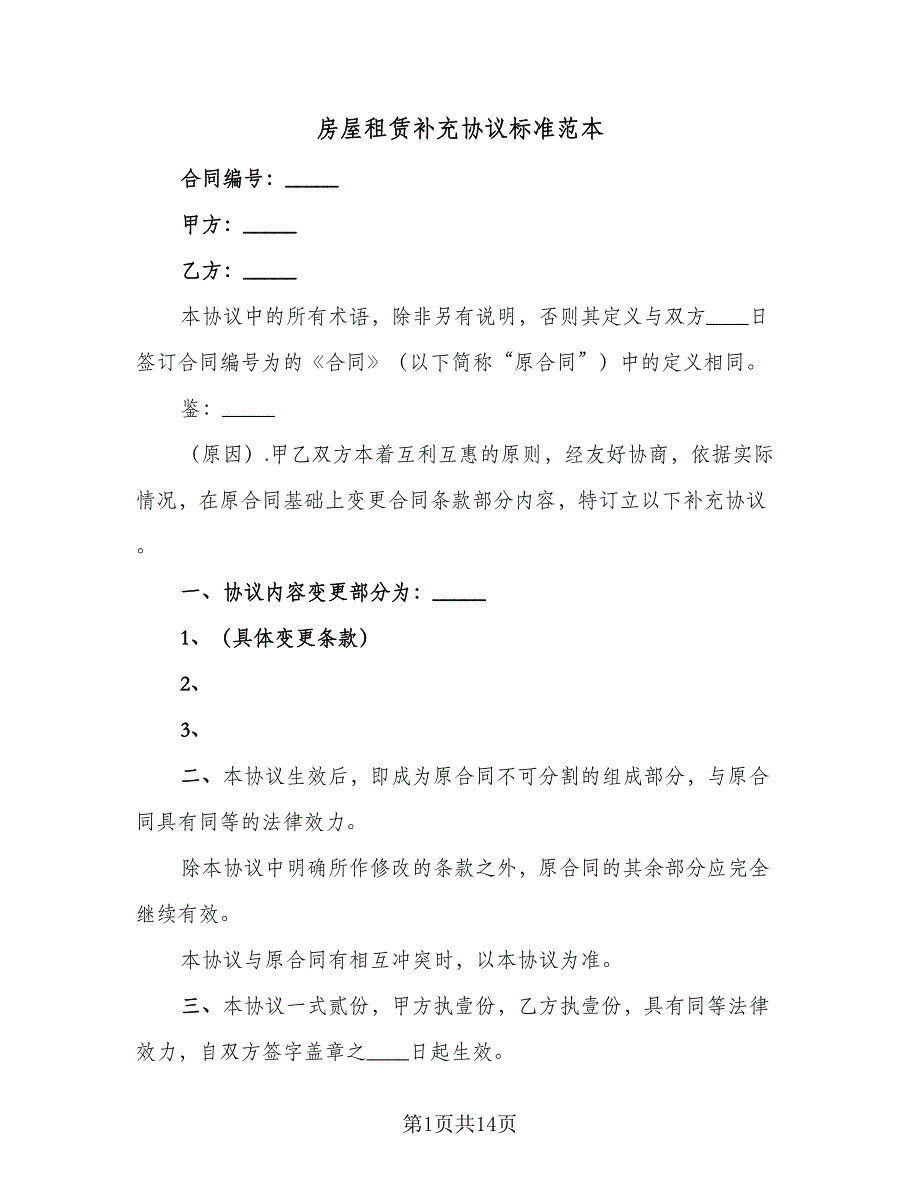 房屋租赁补充协议标准范本
合同编号：_____
甲方：_____
乙方：_____
本协议中的所有术语，除非另有说明，否则其定义与双方____日
签订合同编号为的《合同》（以下简称“原合同”）中的定义相同。
鉴：_____
（原因）.甲乙双方本着互利互惠的原则，经友好协商，依据实际
情况，在原合同基础上变更合同条款部分内容，特订立以下补充协议
。
一、协议内容变更部分为：_____
1、（具体变更条款）
2、
3、
二、本协议生效后，即成为原合同不可分割的组成部分，与原合
同具有同等的法律效力。
除本协议中明确所作修改的条款之外，原合同的其余部分应完全
继续有效。
本协议与原合同有相互冲突时，以本协议为准。
三、本协议一式贰份，甲方执壹份，乙方执壹份，具有同等法律
效力，自双方签字盖章之____日起生效。
第1页共14页